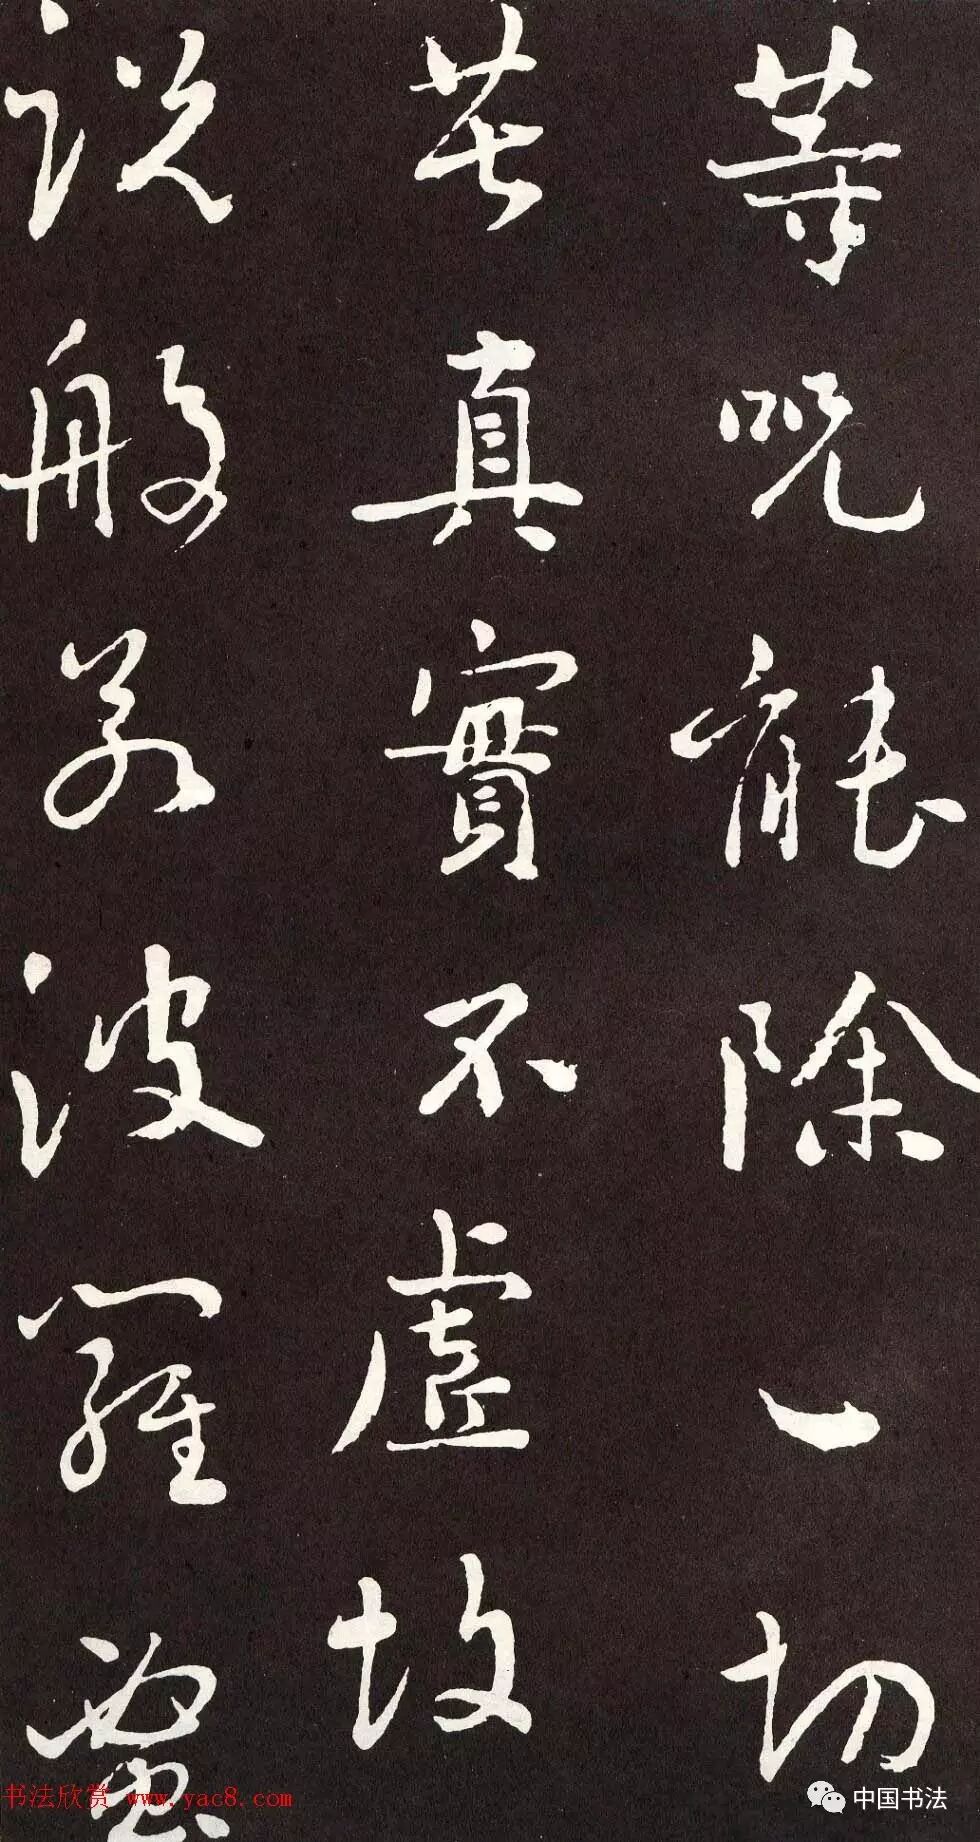 等呪能除一切
苦真實不虛故
說般若波羅蜜
书法欣赏 www.yac8.com
中国书法